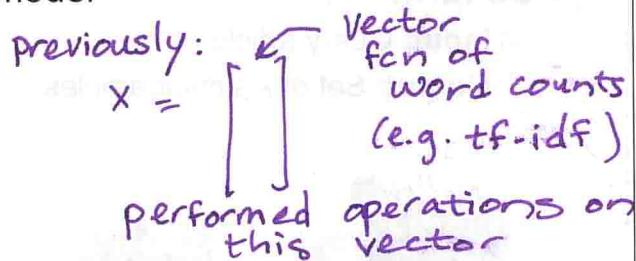 previously:
vector
fcn of
word counts
(e.g. tf-idf)
x =
performed operations on
this vector